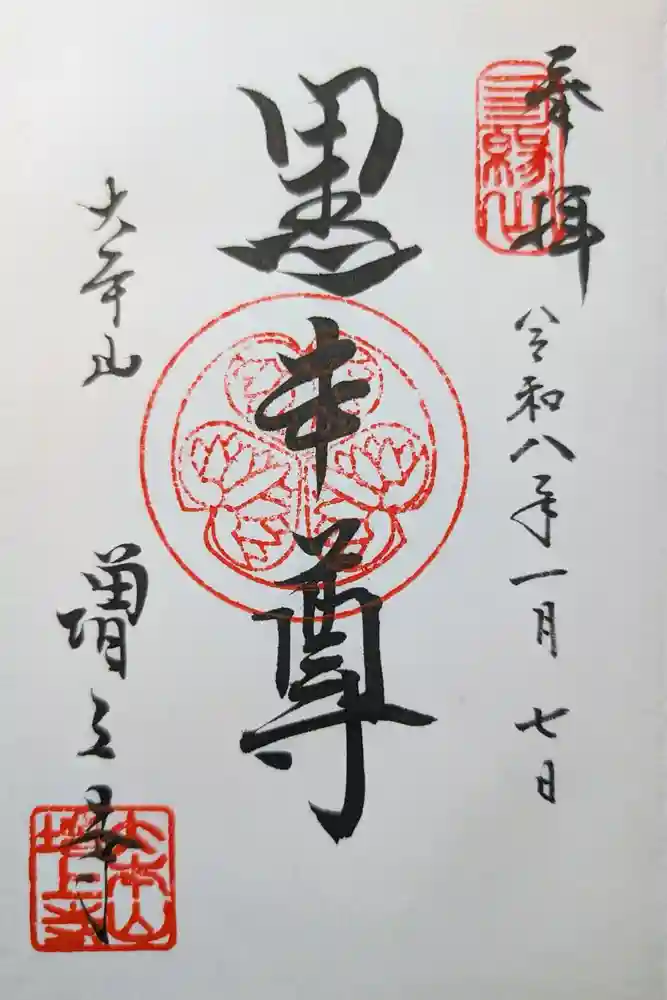 奉拝
三縁山
令和八年一月七日
黒本尊
大本山
増上寺
大本山
増上寺